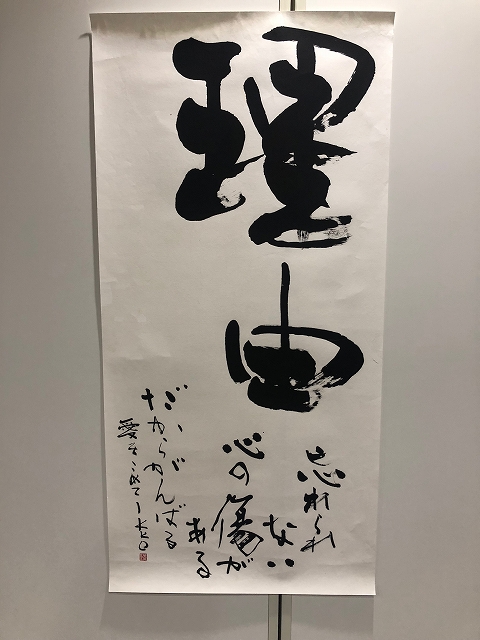 理由
忘れられ
ない
心の傷が
ある
だからがんばる
愛をこめて IKKO